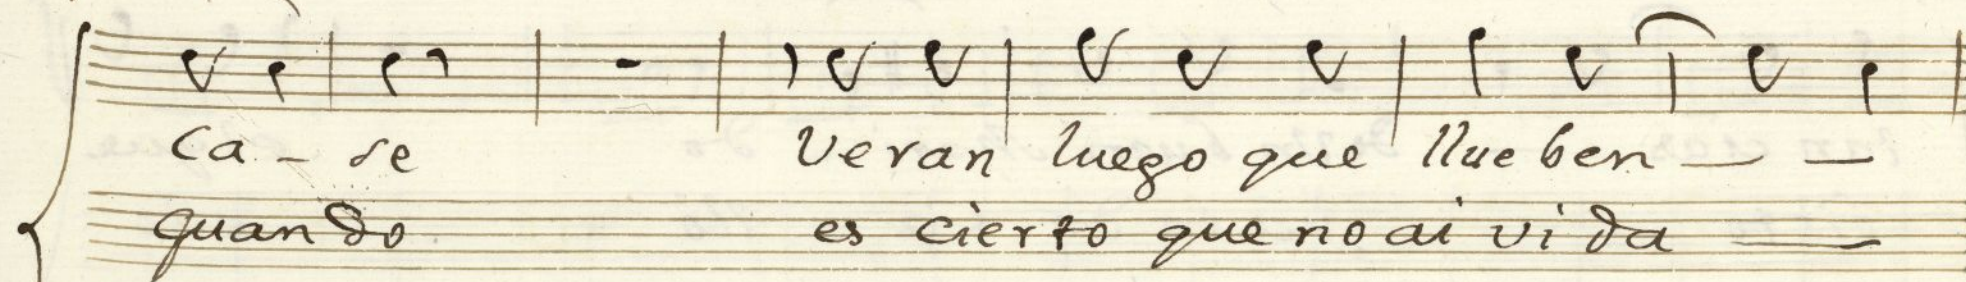 Ca - se Veran luego que llueben — —
quando es cierto que no ai vida —